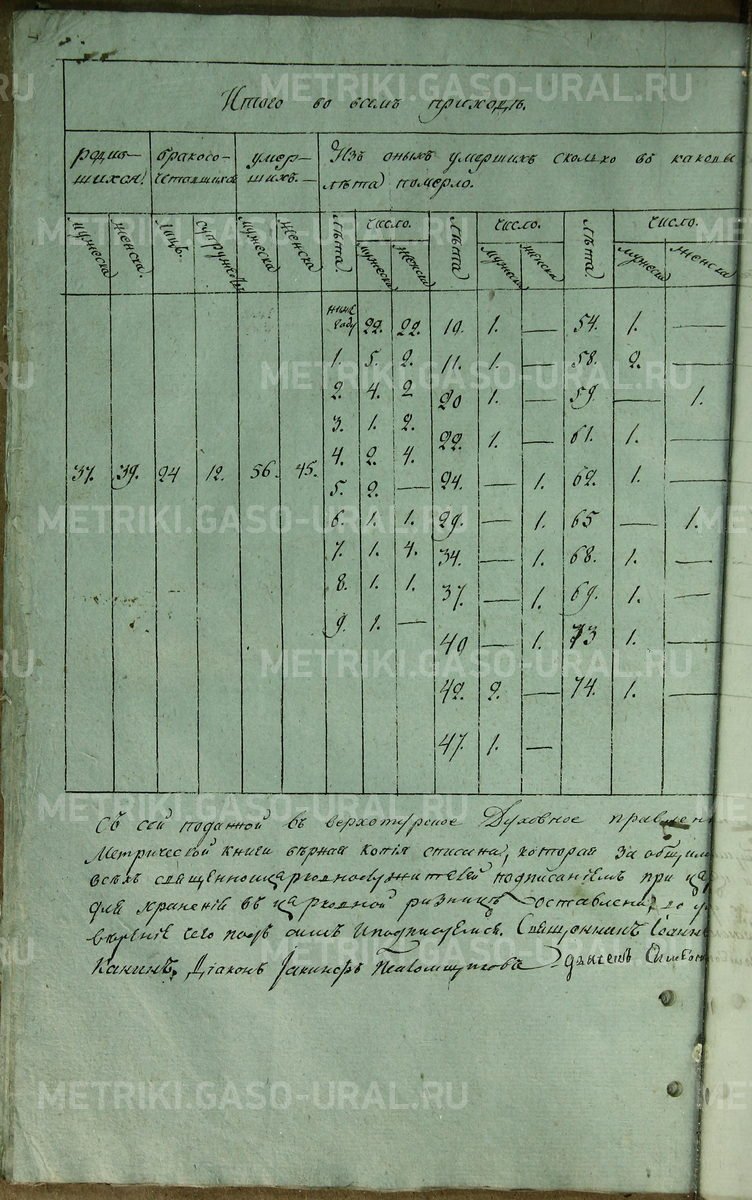 Итого во всемъ приходѣ.
родив-шихся бракосо-четавшихся умер-шихъ. Изъ оныхъ умершихъ сколько въ каковы
лѣта померло.
мужеска женска. лицъ. супружествъ мужеска женска лѣта. число. лѣта число. лѣта. число.
мужеска женска мужеска женска мужеска женска
ниже году 22. 22. 19. 1. — 54. 1. —
1. 5. 2. 11. 1. — 58. 2. —
2. 4. 2 20 1. — 59. — 1.
3. 1. 2. 22. 1. — 61. 1. —
4. 2. 4. 24. — 1. 62. 1. —
37. 39. 24 12. 56. 45. 5. 2. —
6. 1. 1. 29. — 1. 65 — 1.
7. 1. 4. 34. — 1. 68. 1. —
8. 1. 1. 37. — 1. 69. 1. —
9. 1. — 40 — 1. 73 1. —
42. 2. — 74. 1. —
47. 1. —
Съ сей поданной въ верхотурское Духовное правлен
Метрической книги вѣрная копія списана, которая за общимъ
всѣхъ священноцерковнослужителей подписаніемъ при
для храненія въ церковной ризницѣ оставлена,
вѣреніе чего подъ симъ и подписуемся. Священникъ Іоаннъ
Канинъ, Діаконъ Іакинфъ
METRIKI.GASO-URAL.RU